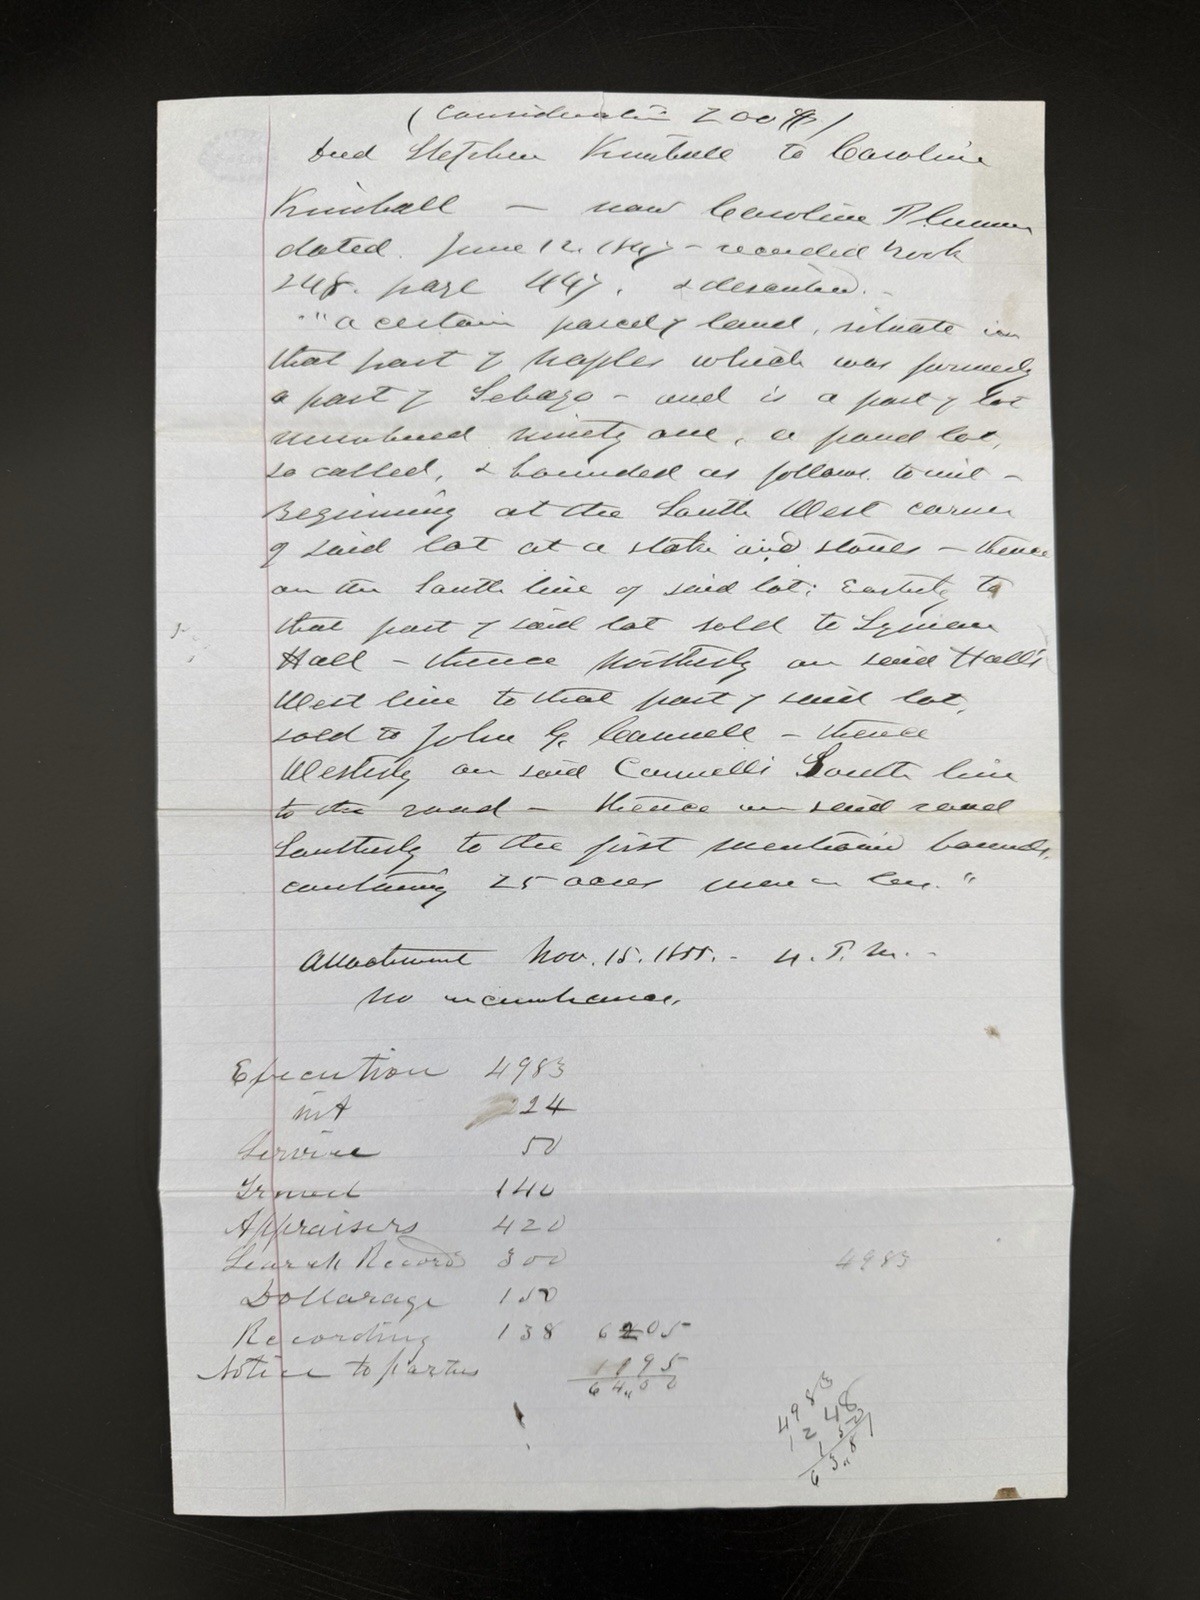 (Consideration 200$)
Deed Stephen Kimball to Caroline
Kimball — now Caroline Plummer
dated June 12. 1847 - recorded book
248. page 447. & described. -
"a certain parcel of land, situate in
that part of Naples which was formerly
a part of Sebago - and is a part of lot
numbered ninety one, a pond lot,
so called, & bounded as follows. to wit -
Beginning at the South West corner
of said lot at a stake and stones - thence
on the South line of said lot; Easterly to
that part of said lot sold to Lyman
Hall - thence Northerly on said Hall's
West line to that part of said lot,
sold to John G. Cannell - thence
Westerly on said Cannell's South line
to the road - thence on said road
Southerly to the first mentioned bounds,
containing 25 acres more or less."
Attachment Nov. 15. 1855. - 4. P. M. -
No incumbrance.
Execution 4983
int 24
Service 50
Travel 140
Appraisers 420
Search Records 300
4983
Dollarage 150
Recording 138 6205
Notice to parties 195
64,,00
4983
1248
150
63,,81